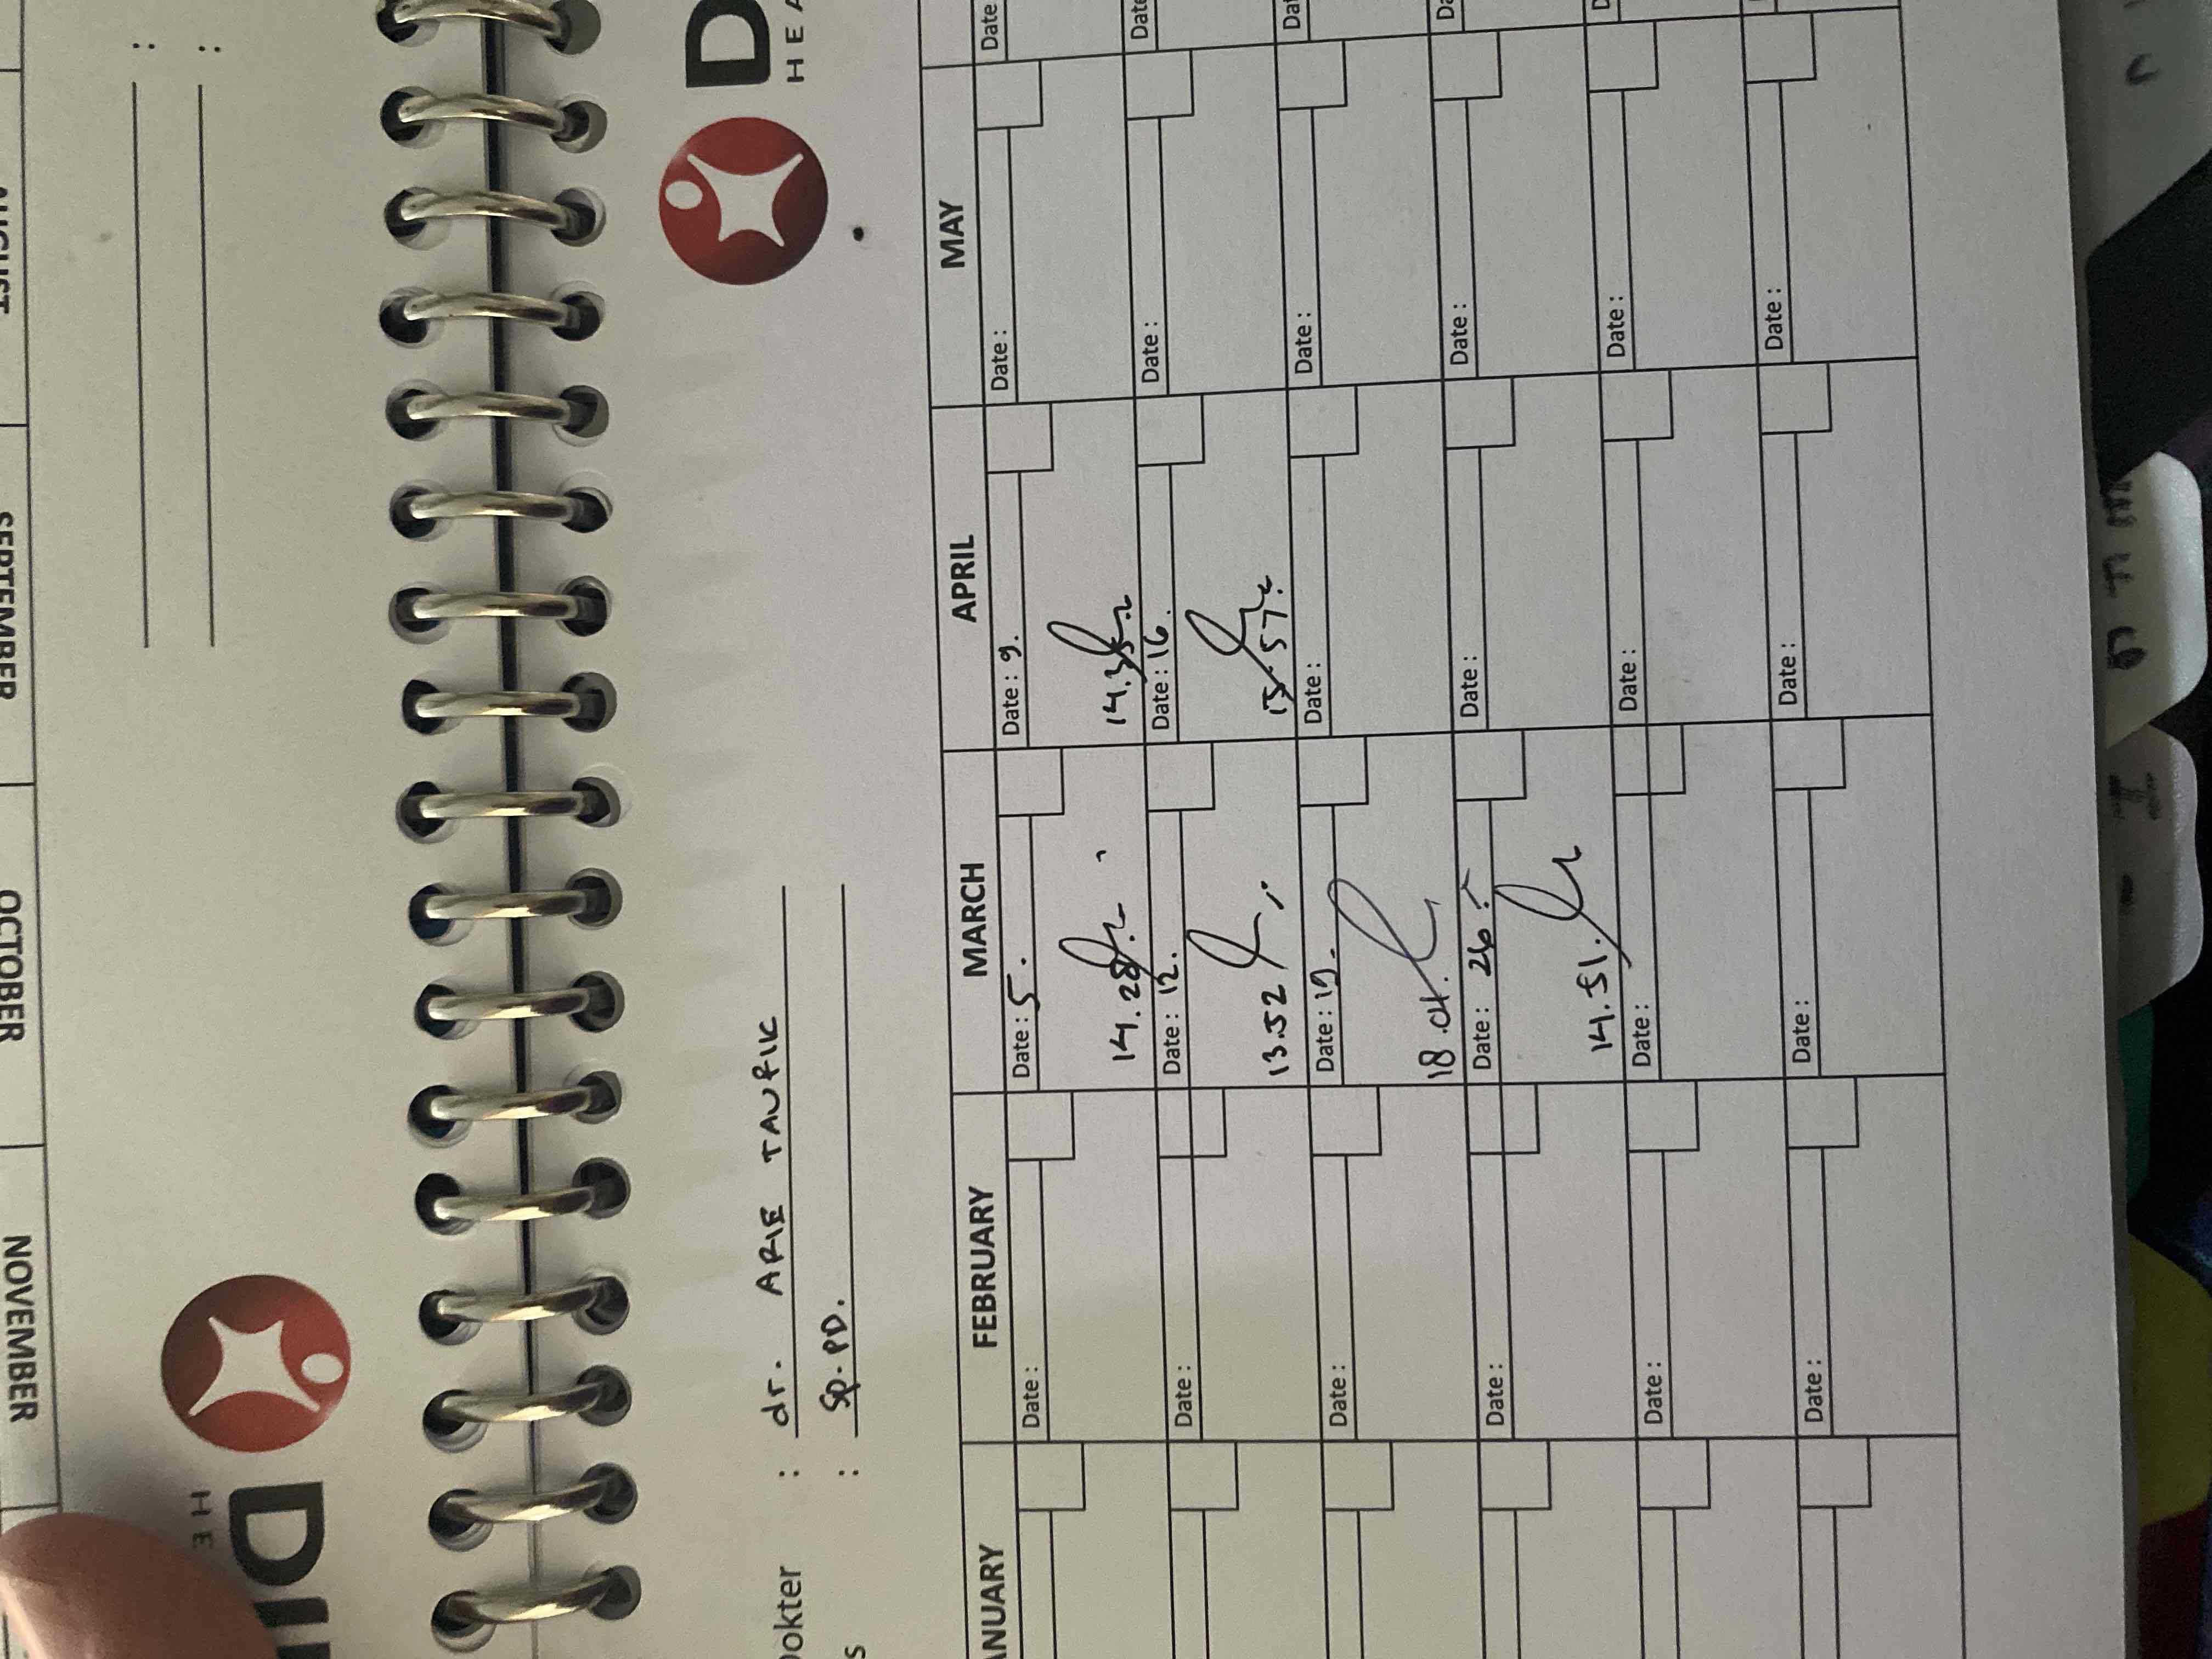 AUGUST
SEPTEMBER
OCTOBER
NOVEMBER
:
:
HE
D
HEA
: dr. ARIE TAUFIK
: Sp.PD.
FEBRUARY MARCH APRIL MAY
Date : Date : 5. Date : 9. Date : Date
14.28
Date : Date : 12. Date : 16. Date : Date
13.52 15.57
Date : Date : 19. Date : Date :
18.04.
Date : Date : 26 Date : Date :
14.51.
Date : Date : Date : Date :
Date : Date : Date : Date :